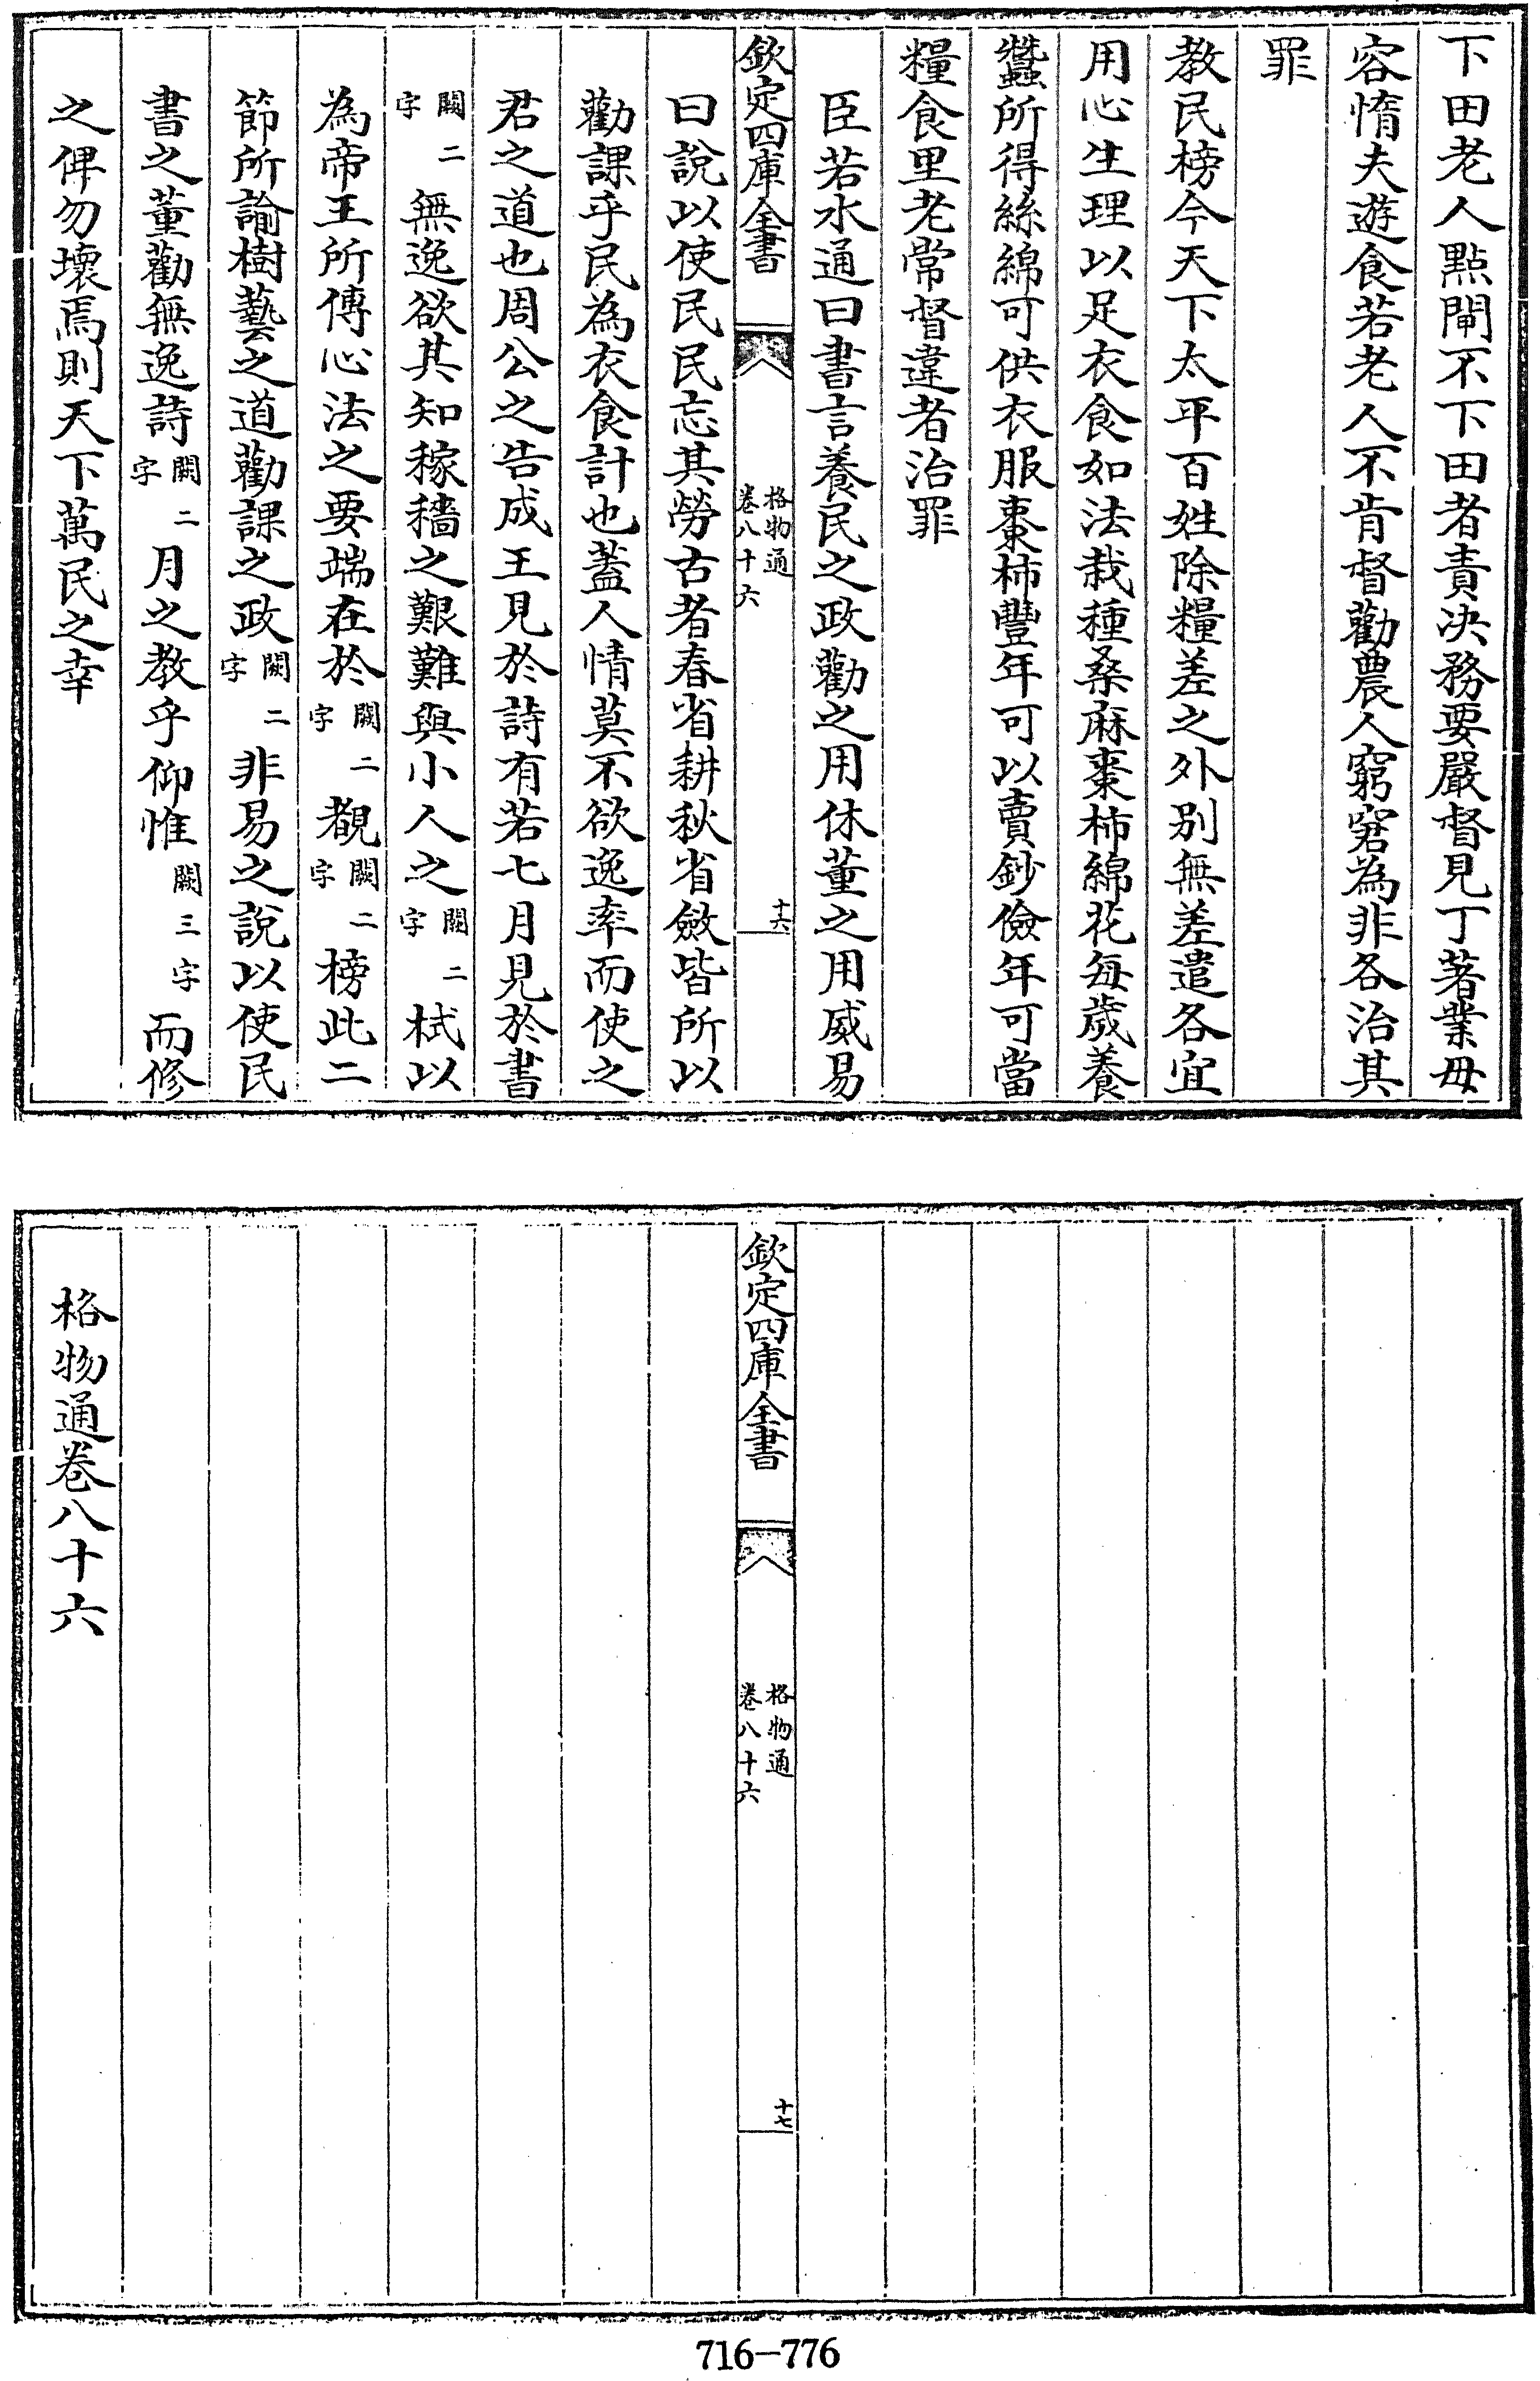 下田老人點閘不下田者責決務要嚴督見丁著業毋
容惰夫遊食若老人不肯督勸農人窮窘為非各治其
罪
教民榜今天下太平百姓除糧差之外别無差遣各宜
用心生理以足衣食如法栽種桑麻棗柿綿花每歲養
蠶所得絲綿可供衣服棗柿豐年可以賣鈔儉年可當
糧食里老常督違者治罪
臣若水通曰書言養民之政勸之用休董之用威易
欽定四庫全書
格物通
卷八十六
十六
曰說以使民民忘其勞古者春省耕秋省斂皆所以
勸課乎民為衣食計也蓋人情莫不欲逸率而使之
君之道也周公之告成王見於詩有若七月見於書
闕二字無逸欲其知稼穡之艱難與小人之闕二字栻以
為帝王所傳心法之要端在於闕二字覩闕二字榜此二
節所諭樹藝之道勸課之政闕二字非易之說以使民
書之董勸無逸詩闕二字月之教乎仰惟闕三字而修
之俾勿壞焉則天下萬民之幸
欽定四庫全書
格物通
卷八十六
十七
格物通卷八十六
716-776